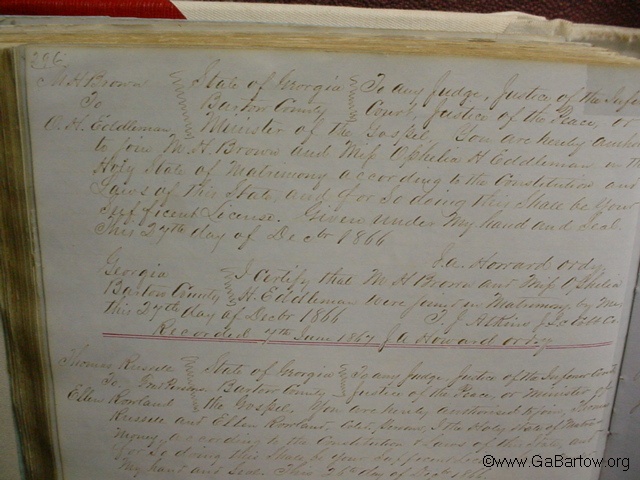 296
M. H. Brown
To
O. H. Eddleman
State of Georgia
Bartow County
To any Judge, Justice of the Infe
Court, Justice of the Peace, or
Minister of the Gospel. You are hereby author
to join M. H. Brown and Miss Ophelia H Eddleman in the
Holy State of Matrimony according to the Constitution and
Laws of this State, and for So doing this Shall be Your
Sufficient License. Given under My hand and Seal
This 27th day of Decbr 1866
J. A. Howard ordy
Georgia
Bartow County
I certify that M H Brown and Miss Ophelia
H. Eddleman were joined in Matrimony by Me
this 27th day of Decbr 1866
Recorded 7th 1867 J A Howard ordy
Thomas Russell
To
Ellen Rowland
State of Georgia
Bartow County
To any Judge, Justice of the Inferior Court
Justice of the Peace, or Minister of
the Gospel. You are hereby authorised to join, Thomas
Russell and Ellen Rowland, in the Holy State of Matri-
mony, according to the Constitution & Laws of this State, and
for So doing this Shall be Your Sufficient
My hand and Seal. This day of
©www.GaBartow.org